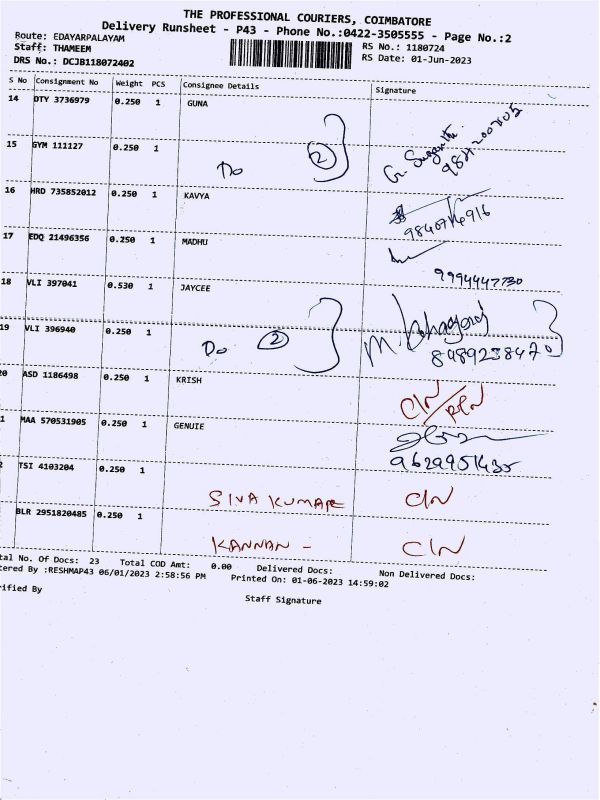 THE PROFESSIONAL COURIERS, COIMBATORE
Delivery Runsheet - P43 - Phone No.:0422-3505555 - Page No.:2
Route: EDAYARPALAYAM
RS No.: 1180724
Staff: THAMEEM
RS Date: 01-Jun-2023
DRS No.: DCJB118072402
S No Consignment No Weight PCS Consignee Details Signature
14 DTY 3736979 0.250 1 GUNA
15 GYM 111127 0.250 1 Do 2
16 HRD 735852012 0.250 1 KAVYA
17 EDQ 21496356 0.250 1 MADHU
9994447730
18 VLI 397041 0.530 1 JAYCEE
19 VLI 396940 0.250 1 Do 2 M. 8489238470
20 ASD 1186498 0.250 1 KRISH
1 MAA 570531905 0.250 1 GENUIE
2 TSI 4103204 0.250 1 SIVA KUMAR C/N
BLR 2951820485 0.250 1 KANNAN - C/N
tal No. Of Docs: 23 Total COD Amt: 0.00 Delivered Docs: Non Delivered Docs:
tered By :RESHMAP43 06/01/2023 2:58:56 PM Printed On: 01-06-2023 14:59:02
rified By Staff Signature